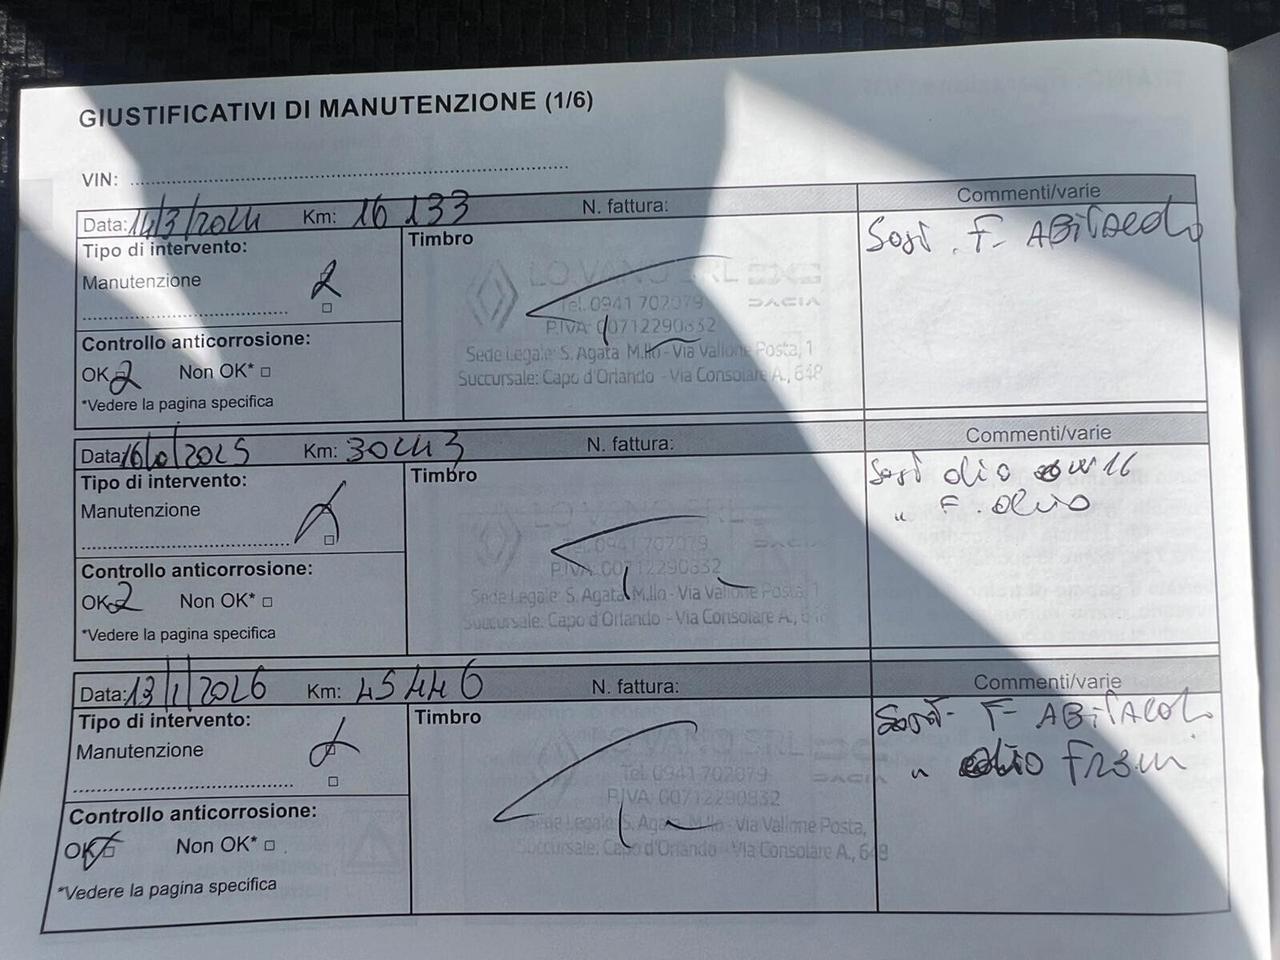 GIUSTIFICATIVI DI MANUTENZIONE (1/6)
VIN: ........................................
Data: 14/3/2024 Km: 16 133 N. fattura: Commenti/varie
Tipo di intervento: Timbro Sost. F- ABITACOLO
Manutenzione
LO VANO SRL
DACIA
Tel. 0941 702079
P.IVA: 00712290832
Controllo anticorrosione:
Sede Legale: S. Agata M.llo - Via Vallone Posta, 1
OK Non OK* □
Succursale: Capo d'Orlando - Via Consolare A., 648
*Vedere la pagina specifica
Data: 2025 Km: 30443 N. fattura: Commenti/varie
Tipo di intervento: Timbro Sost olio
Manutenzione " F. olio
LO VANO SRL
Tel. 0941 702079
P.IVA: 00712290832
Controllo anticorrosione:
Sede Legale: S. Agata M.llo - Via Vallone Posta, 1
OK Non OK* □
Succursale: Capo d'Orlando - Via Consolare A., 648
*Vedere la pagina specifica
Data: 13/1/2026 Km: 45446 N. fattura: Commenti/varie
Tipo di intervento: Timbro Sost- F- ABITACOLO
Manutenzione " olio FRENI
LO VANO SRL
Tel. 0941 702079
DACIA
P.IVA: 00712290832
Controllo anticorrosione:
Sede Legale: S. Agata M.llo - Via Vallone Posta,
OK Non OK* □
Succursale: Capo d'Orlando - Via Consolare A., 648
*Vedere la pagina specifica